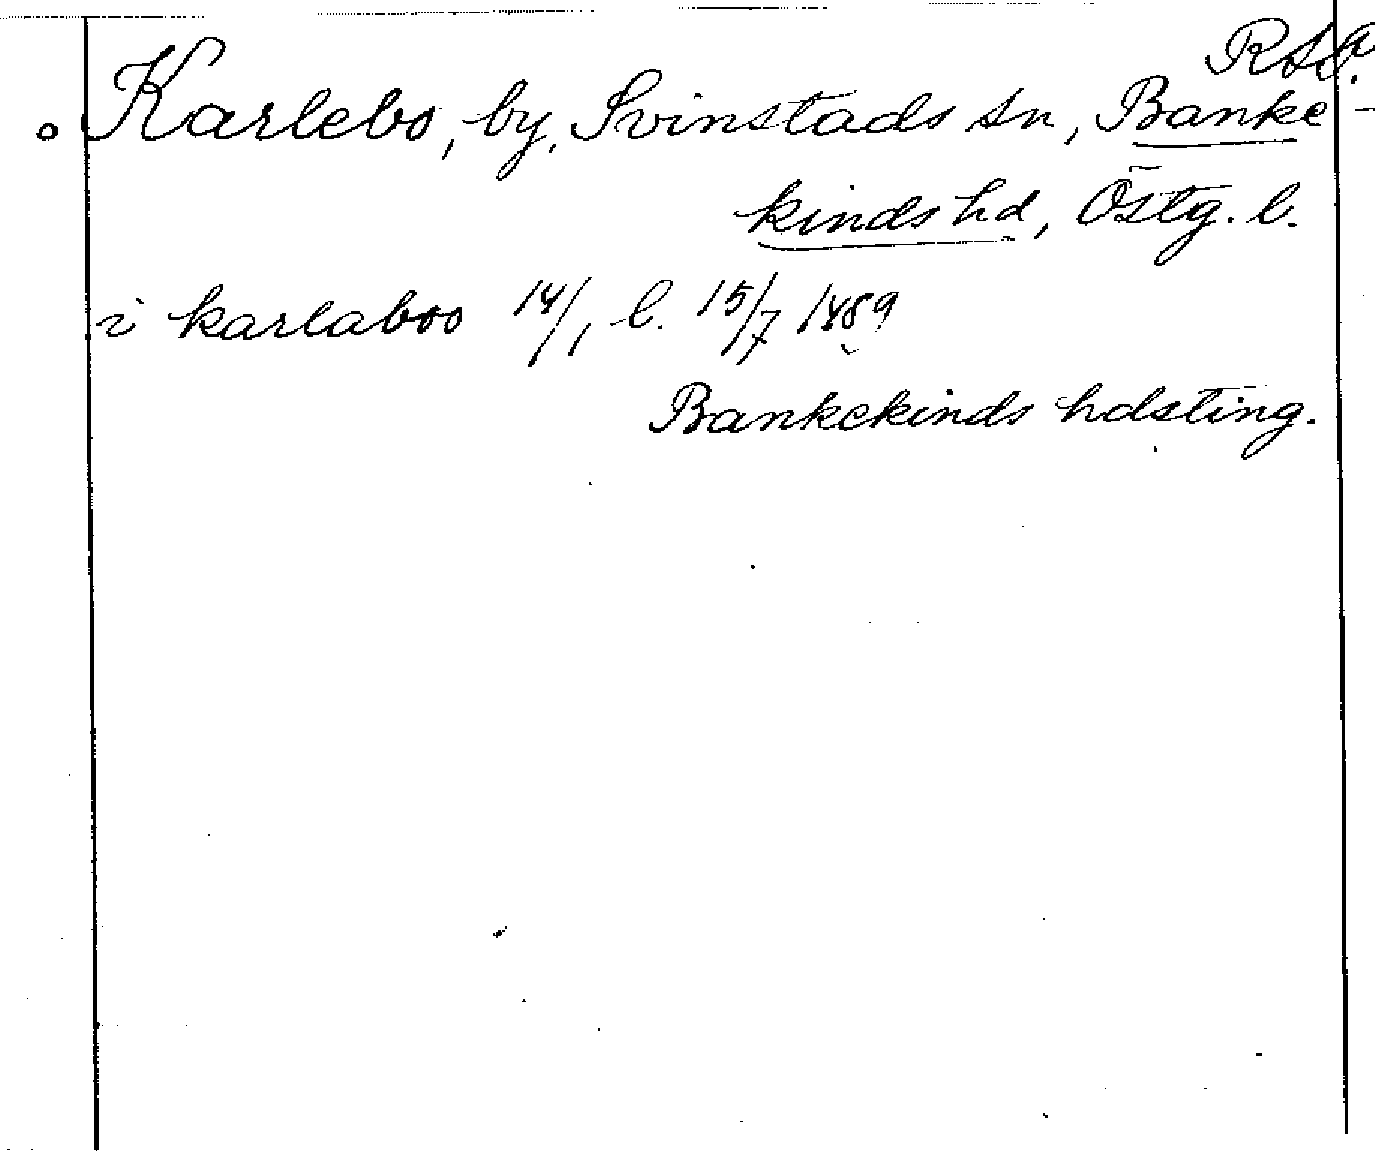 RAO.
° Karlebo, by, Svinstads sn, Banke-
kinds hd, Östg. l.
i karlaboo 14/1, l. 15/7 1489
Bankekinds hdsting.